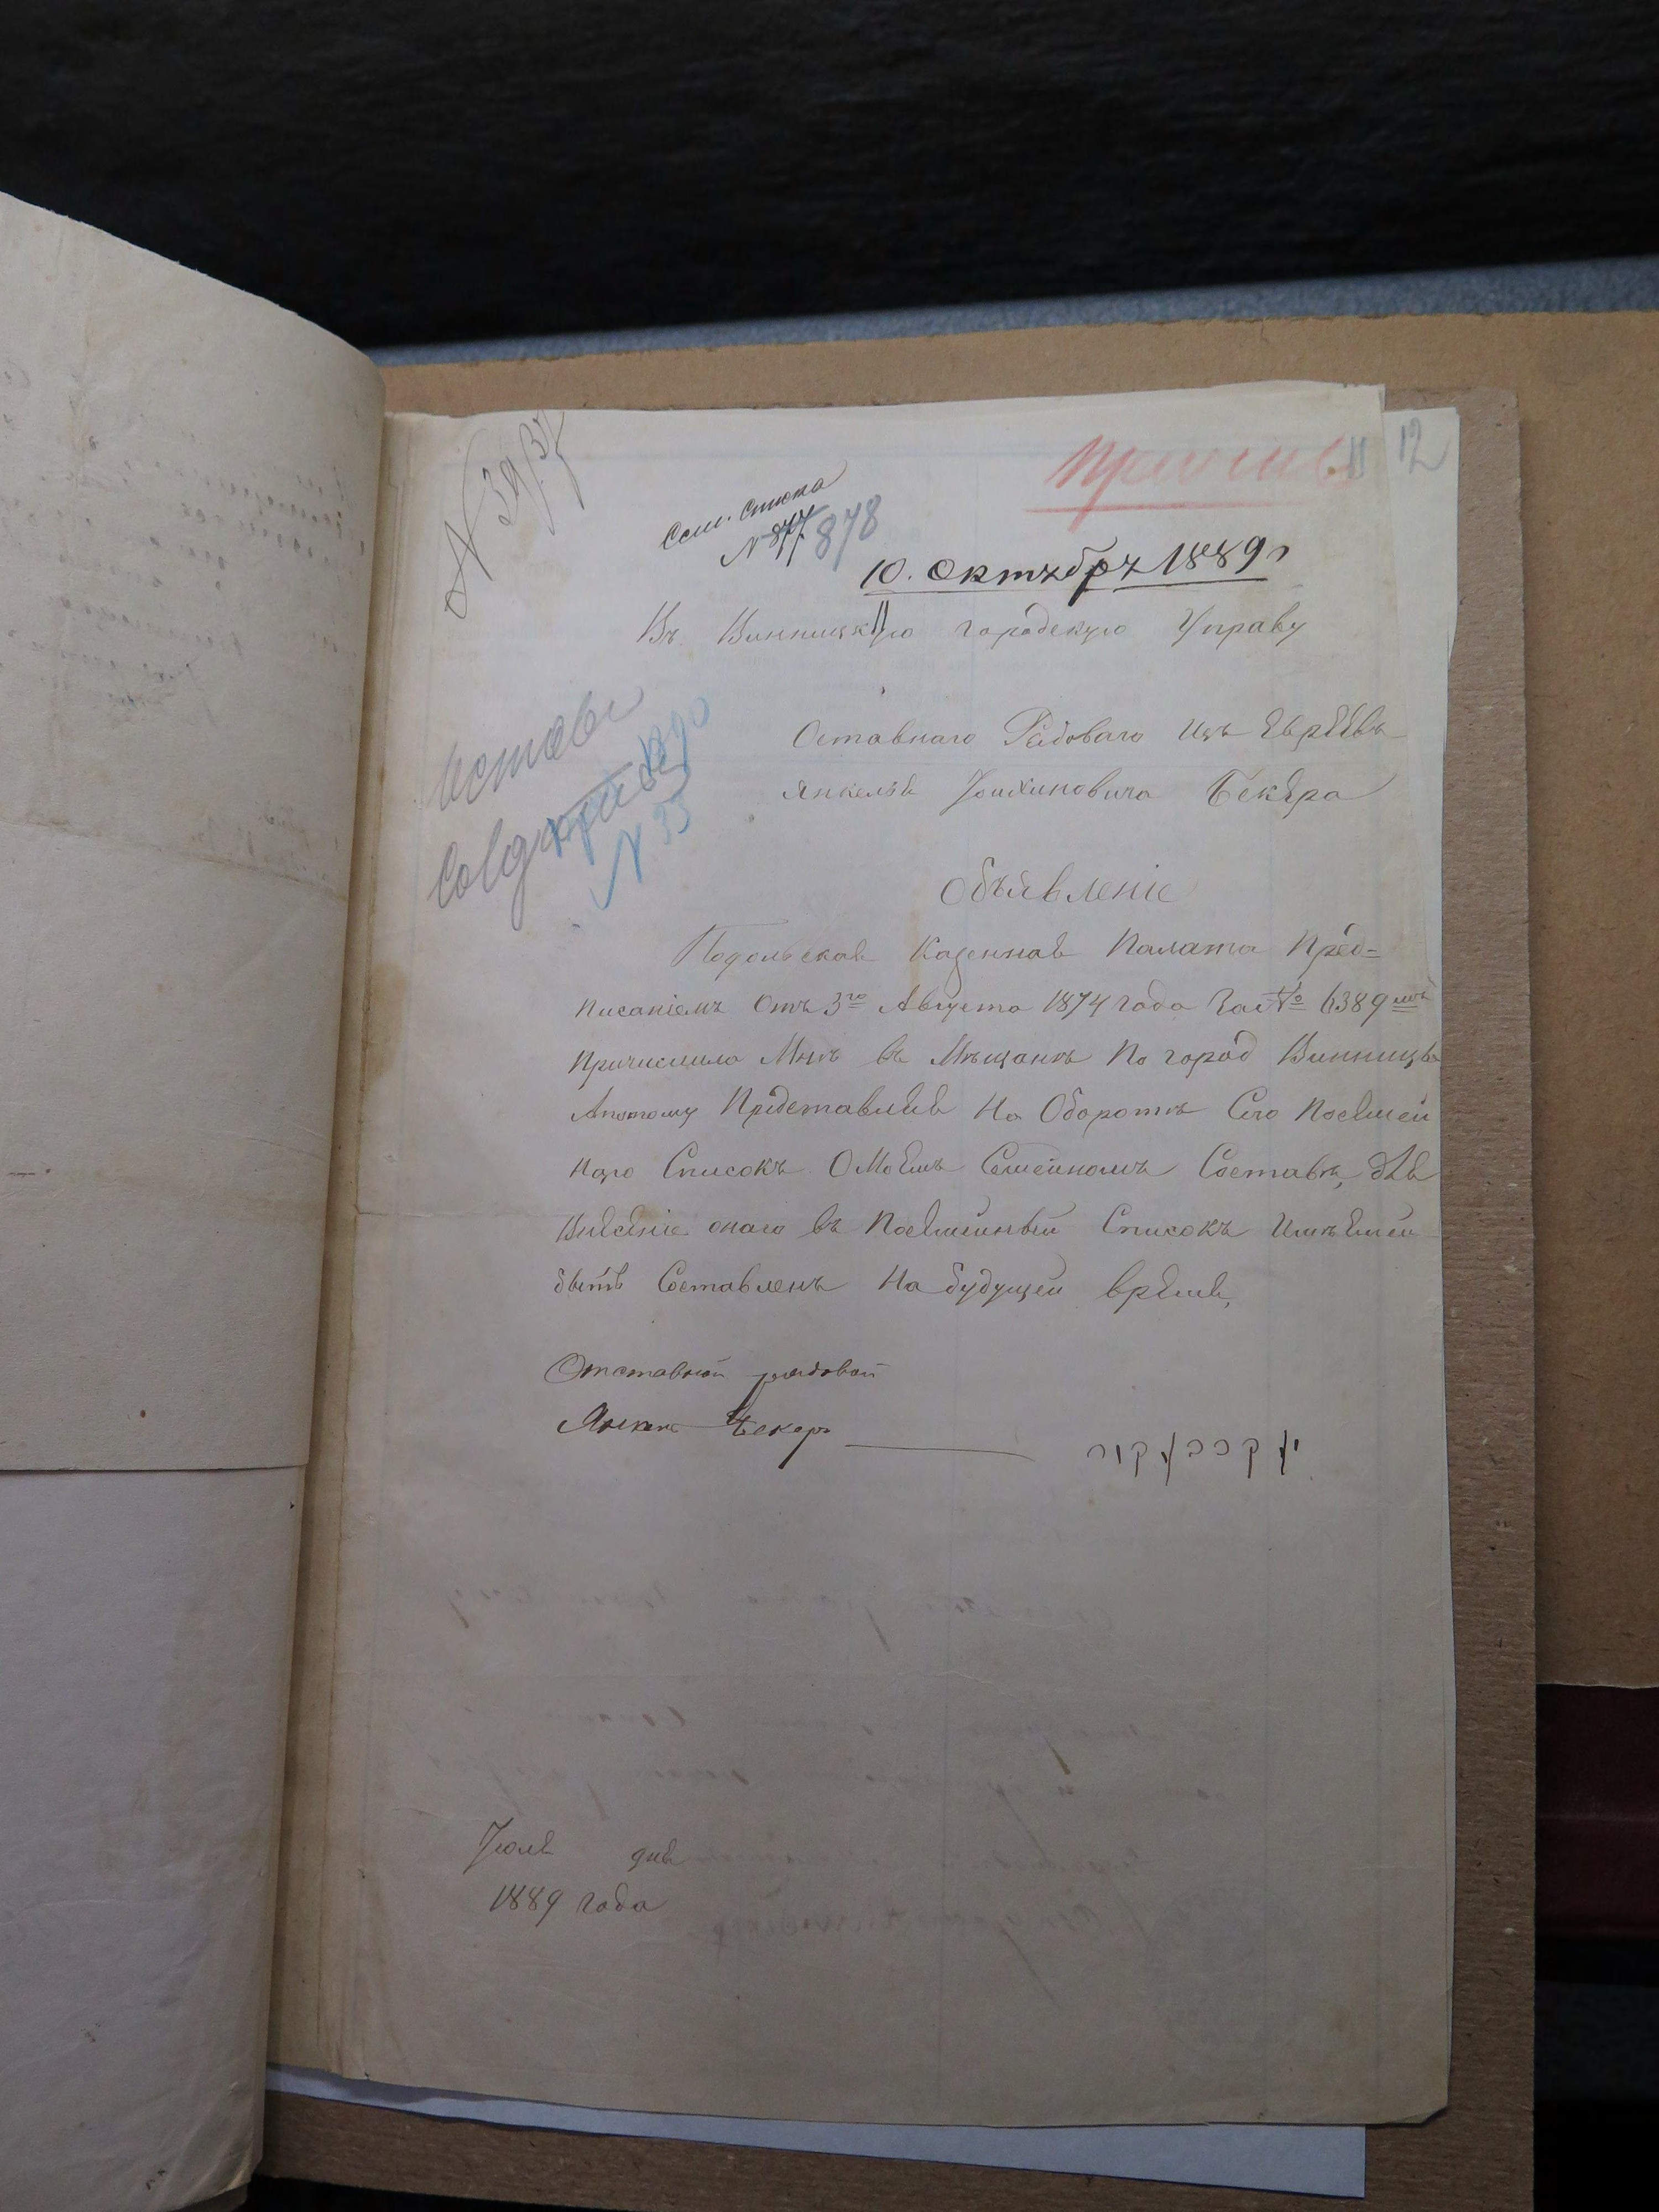 12
N 3937
Сем. списка
N 877. 878
10. Октября 1889 г
Въ Винницкую городскую Управу
Оставнаго Рядоваго изъ Евреевъ
Янкеля Бекера
1890
N 33
Объявленіе
Подольская Казенная Палата Пред=
писаніемъ Отъ 3го Августа 1874 года За № 6389мъ
Причислила Мнъ въ Мѣщанъ По город Винницѣ
Апотому Представляя На Оборотѣ Сего Посемей
наго Списокъ О Моемъ Семейномъ Составѣ, для
Внесеніе онаго въ Посемейный Списокъ Имѣемей
быть Составленъ На будущей время,
Отставной рядовой
Янкель Бекеръ
יענקל בעקיר
Юля дня
1889 года